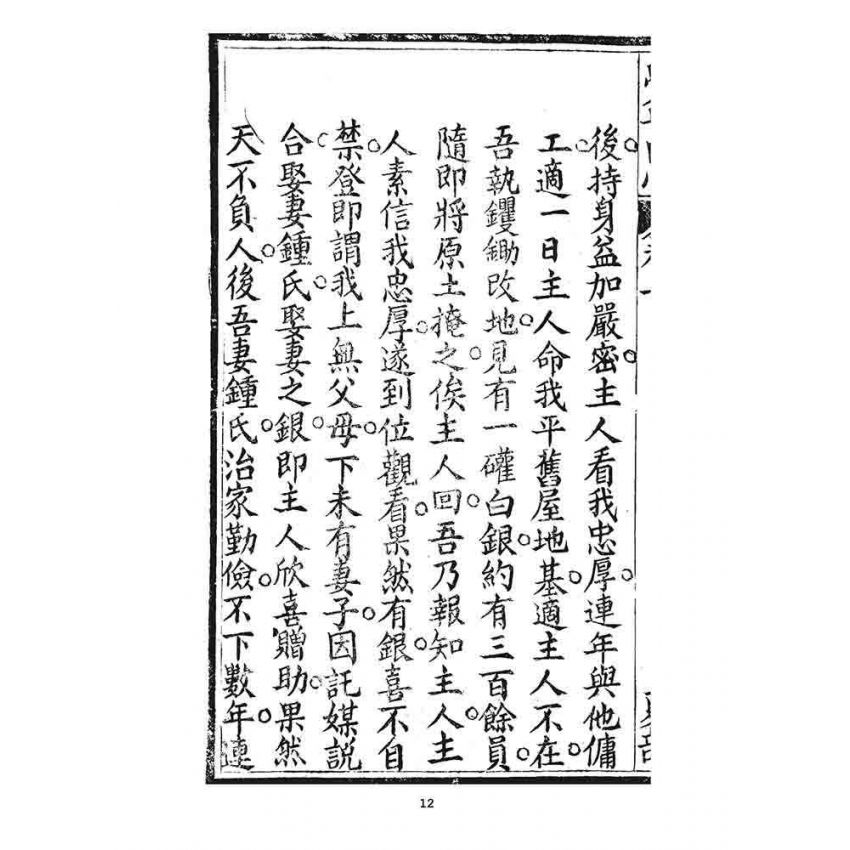 後持身益加嚴密。主人看我忠厚。連年與他傭
工。適一日主人命我平舊屋地基。適主人不在。
吾執钁鋤改地。見有一礶白銀。約有三百餘員。
隨即將原土掩之。俟主人回。吾乃報知主人。主
人素信我忠厚。遂到位觀看。果然有銀。喜不自
禁。登即謂我上無父母。下未有妻子。因託媒説
合。娶妻鍾氏。娶妻之銀。即主人欣喜贈助。果然
天不負人。後吾妻鍾氏。治家勤儉。不下數年。連
12